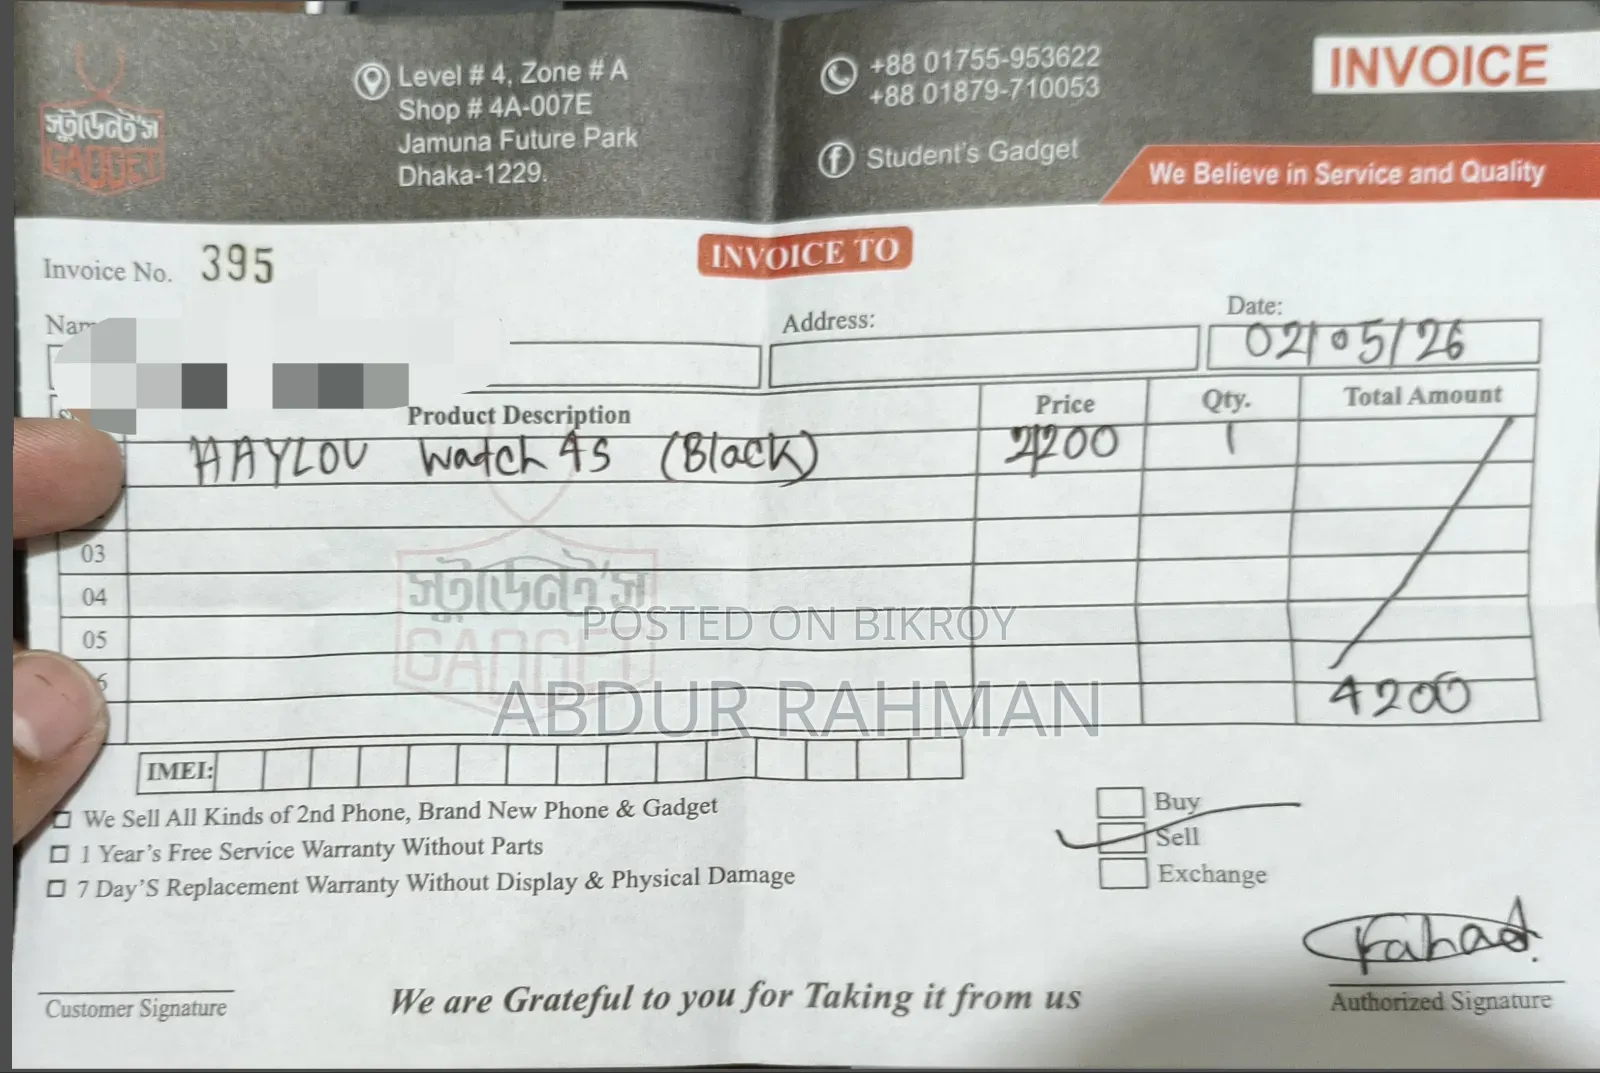 স্টুডেন্ট'স
GADGET
Level # 4, Zone # A
Shop # 4A-007E
Jamuna Future Park
Dhaka-1229.
+88 01755-953622
+88 01879-710053
Student's Gadget
INVOICE
We Believe in Service and Quality
Invoice No. 395
INVOICE TO
Address:
Date:
02/05/26
Product Description Price Qty. Total Amount
HAYLOU Watch 4S (Black) 1
03
04
05
স্টুডেন্ট'স
GADGET
POSTED ON BIKROY
ABDUR RAHMAN
4200
IMEI:
We Sell All Kinds of 2nd Phone, Brand New Phone & Gadget
1 Year's Free Service Warranty Without Parts
7 Day'S Replacement Warranty Without Display & Physical Damage
Buy
Sell
Exchange
Fahad.
Customer Signature
We are Grateful to you for Taking it from us
Authorized Signature